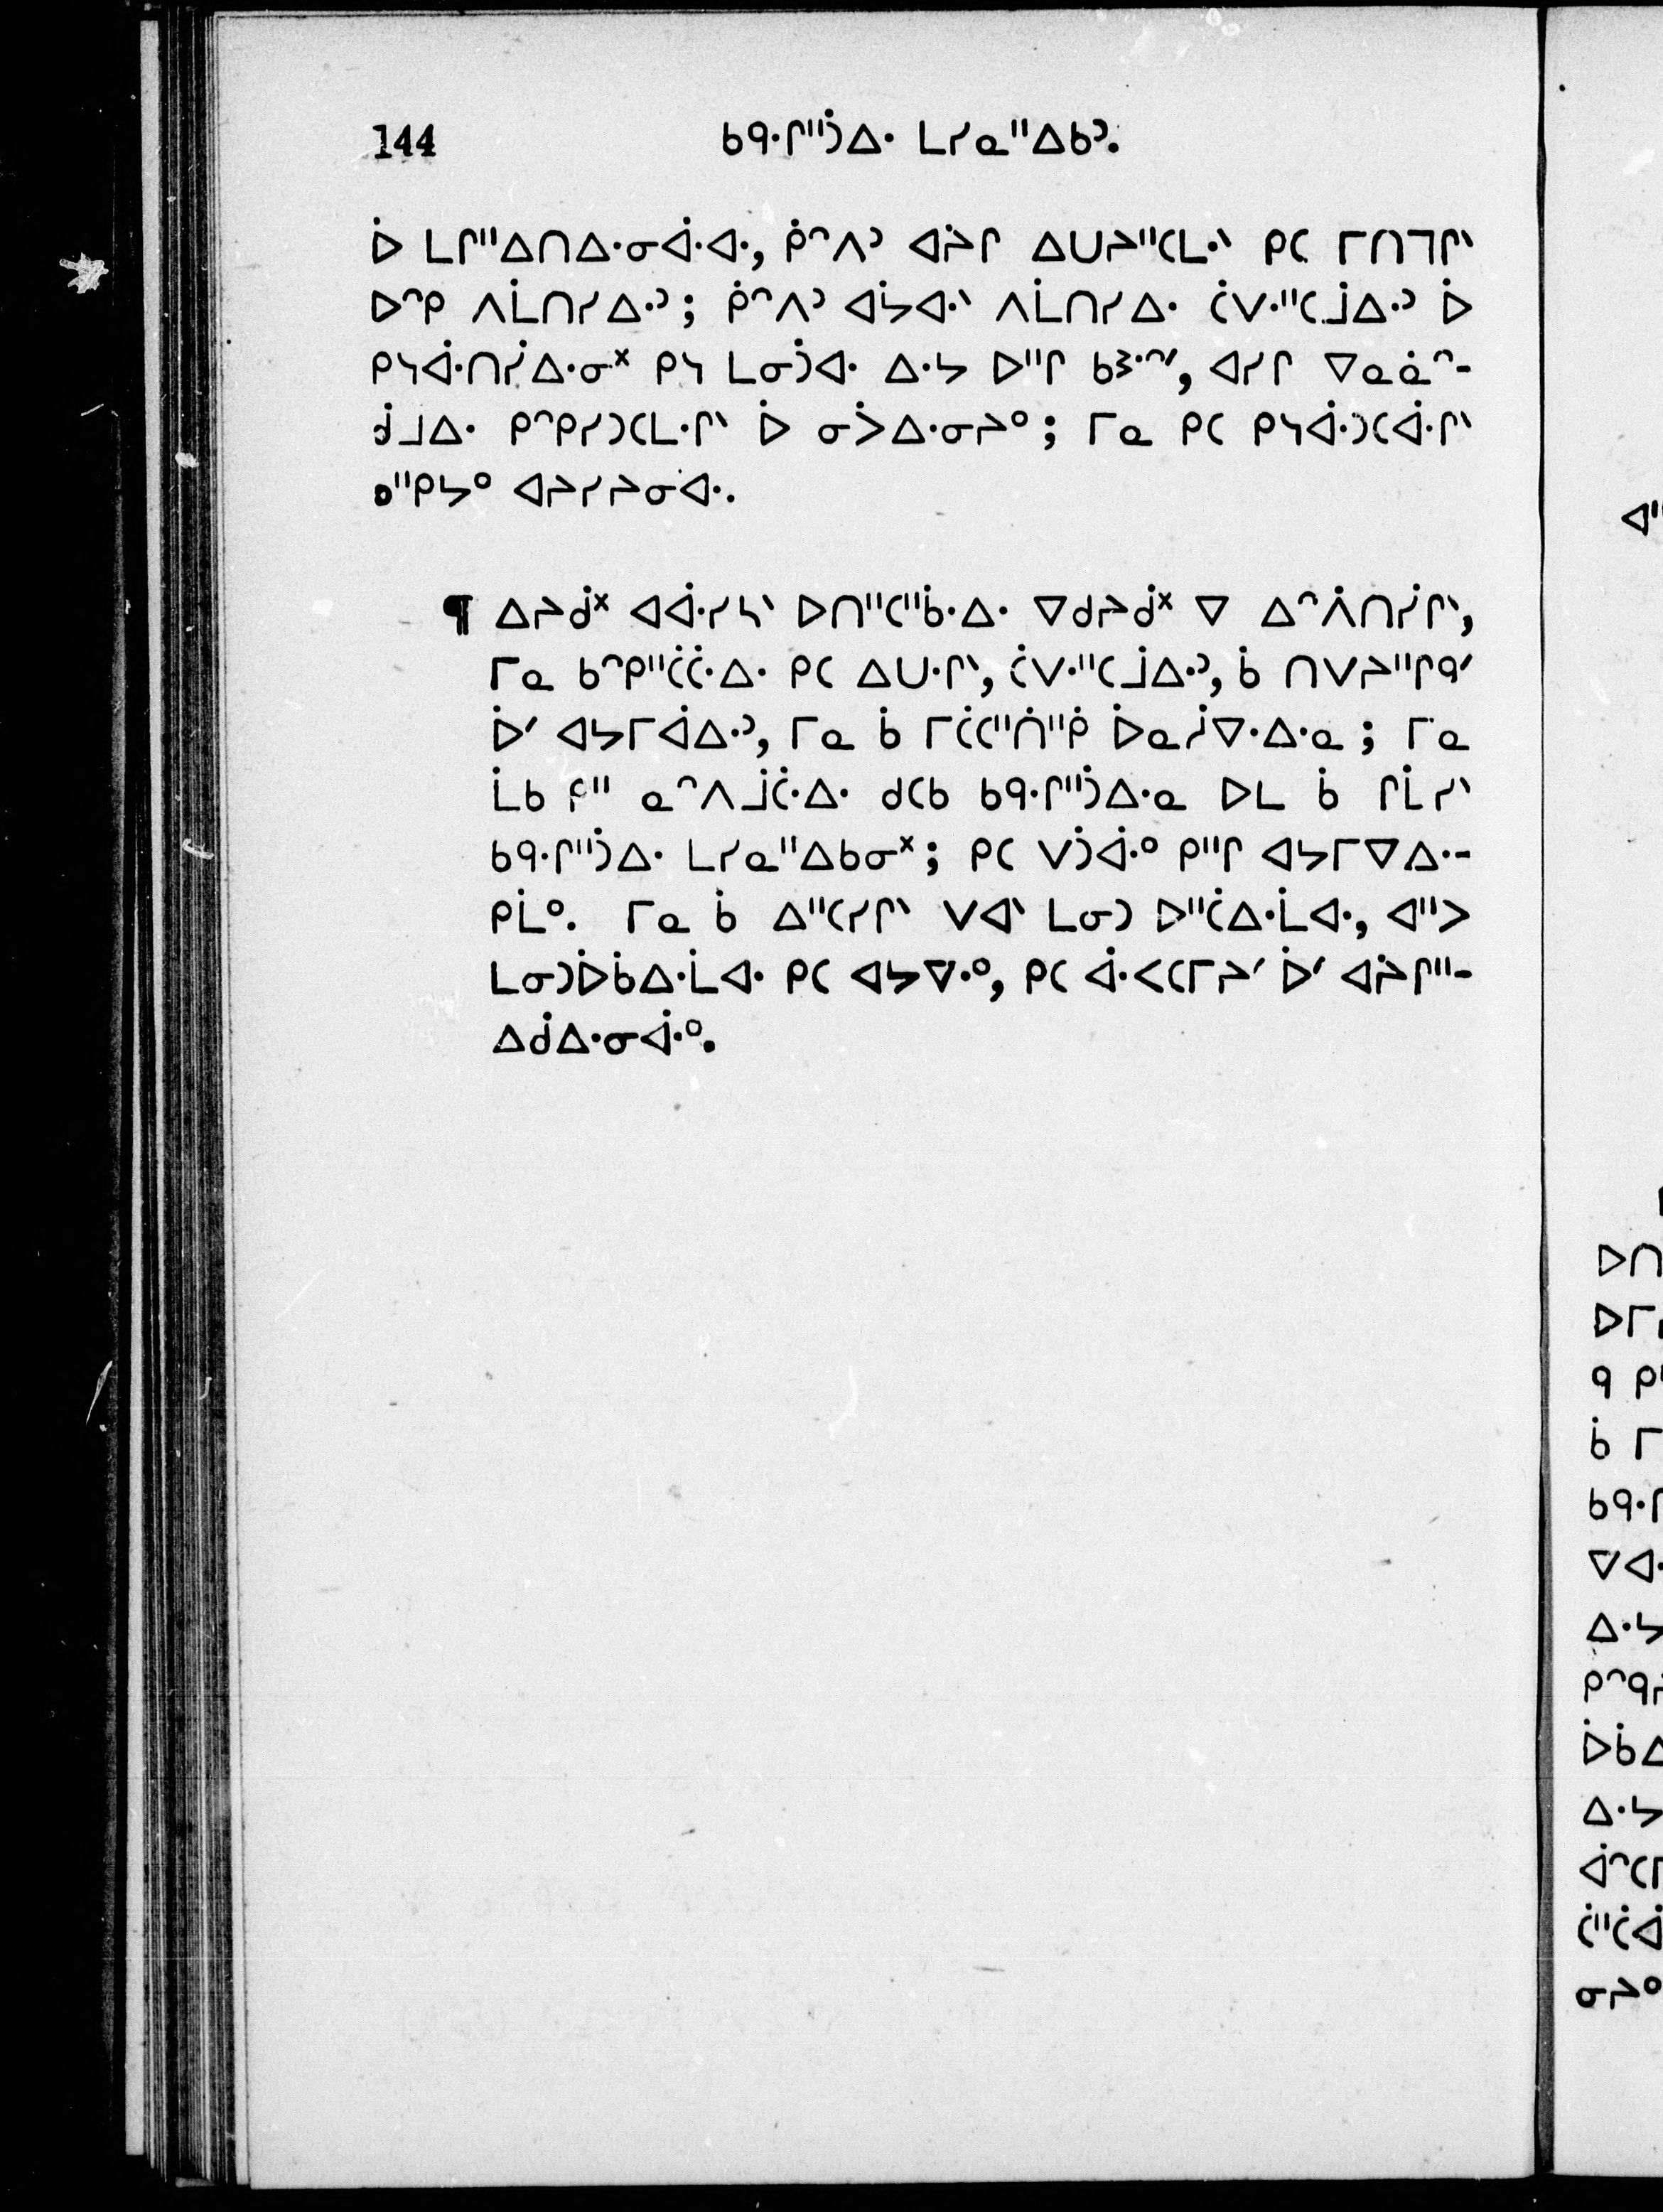 144 ᑲᑫᐧᒋᐦᑑᐃᐧ ᒪᓯᓇᐦᐃᑲᐣ.
ᐆ ᒪᒋᐦᐃᑎᐃᐧᓂᐚᐊᐧ, ᑮᐢᐱᐣ ᐊᔩᒋ ᐃᑌᔨᐦᑕᒪᐧᐠ ᑭᑕ ᒥᑎᒣᒋᐠ
ᐅᐢᑭ ᐱᒫᑎᓯᐃᐧᐣ; ᑮᐢᐱᐣ ᐊᔮᐊᐧᐠ ᐱᒫᑎᓯᐃᐧ ᑖᐯᐧᐦᑕᒨᐃᐧᐣ ᐆ
ᑭᓴᐚᑎᓰᐃᐧᓂᕽ ᑭᓴ ᒪᓂᑑᐊᐧ ᐃᐧᔭ ᐅᐦᒋ ᑲᕒᐧᐢᐟ, ᐊᓯᒋ ᐁᓇᓈᐢ-
ᑰᒧᐃᐧ ᑭᐢᑭᓯᑐᑕᒪᐧᒋᐠ ᐆ ᓂᐴᐃᐧᓂᔨᐤ; ᒥᓇ ᑭᑕ ᑭᓴᐚᑐᑕᐚᒋᐠ
ᑲᐦᑭᔭᐤ ᐊᔨᓯᔨᓂᐊᐧ.
¶ ᐃᔨᑰᕽ ᐊᐚᓯᓴᐠ ᐅᑎᐦᑕᐦᑳᐧᐃᐧ ᐁᑯᔨᑰᕽ ᐁ ᐃᐢᐲᑎᓰᒋᐠ,
ᒥᓇ ᑲᐢᑭᐦᑖᑖᐧᐃᐧ ᑭᑕ ᐃᑌᐧᒋᐠ, ᑖᐯᐧᐦᑕᒨᐃᐧᐣ, ᑳ ᑎᐯᔨᐦᒋᑫᐟ
ᐆᐟ ᐊᔭᒥᐋᐃᐧᐣ, ᒥᓇ ᑳ ᒥᑖᑕᐦᑏᐦᑮ ᐆᓇᓰᐁᐧᐃᐧᓇ; ᒥᓇ
ᒫᑲ ᓇᐢᐱᒨᑖᐧᐃᐧ ᑯᑕᑲ ᑲᑫᐧᒋᐦᑑᐃᐧᓇ ᐅᒪ ᑳ ᒋᒫᓯᐠ
ᑲᑫᐧᒋᐦᑑᐃᐧ ᒪᓯᓇᐦᐃᑲᓂᕽ; ᑭᑕ ᐯᑑᐚᐧᐤ ᑭᐦᒋ ᐊᔭᒥᐁᐃᐧ-
ᑭᒫᐤ. ᒥᓇ ᑳ ᐃᐦᑕᓯᒋᐠ ᐯᐊᐠ ᒪᓂᑐ ᐅᐦᑖᐃᐧᒫᐊᐧ, ᐊᐦᐳ
ᒪᓂᑐᐆᑳᐃᐧᒫᐊᐧ ᑭᑕ ᐊᔭᐁᐧᐤ, ᑭᑕ ᐚᐸᑕᒥᔨᐟ ᐆᐟ ᐊᔩᒋᐦ-
ᐃᑰᐃᐧᓂᐚᐤ.